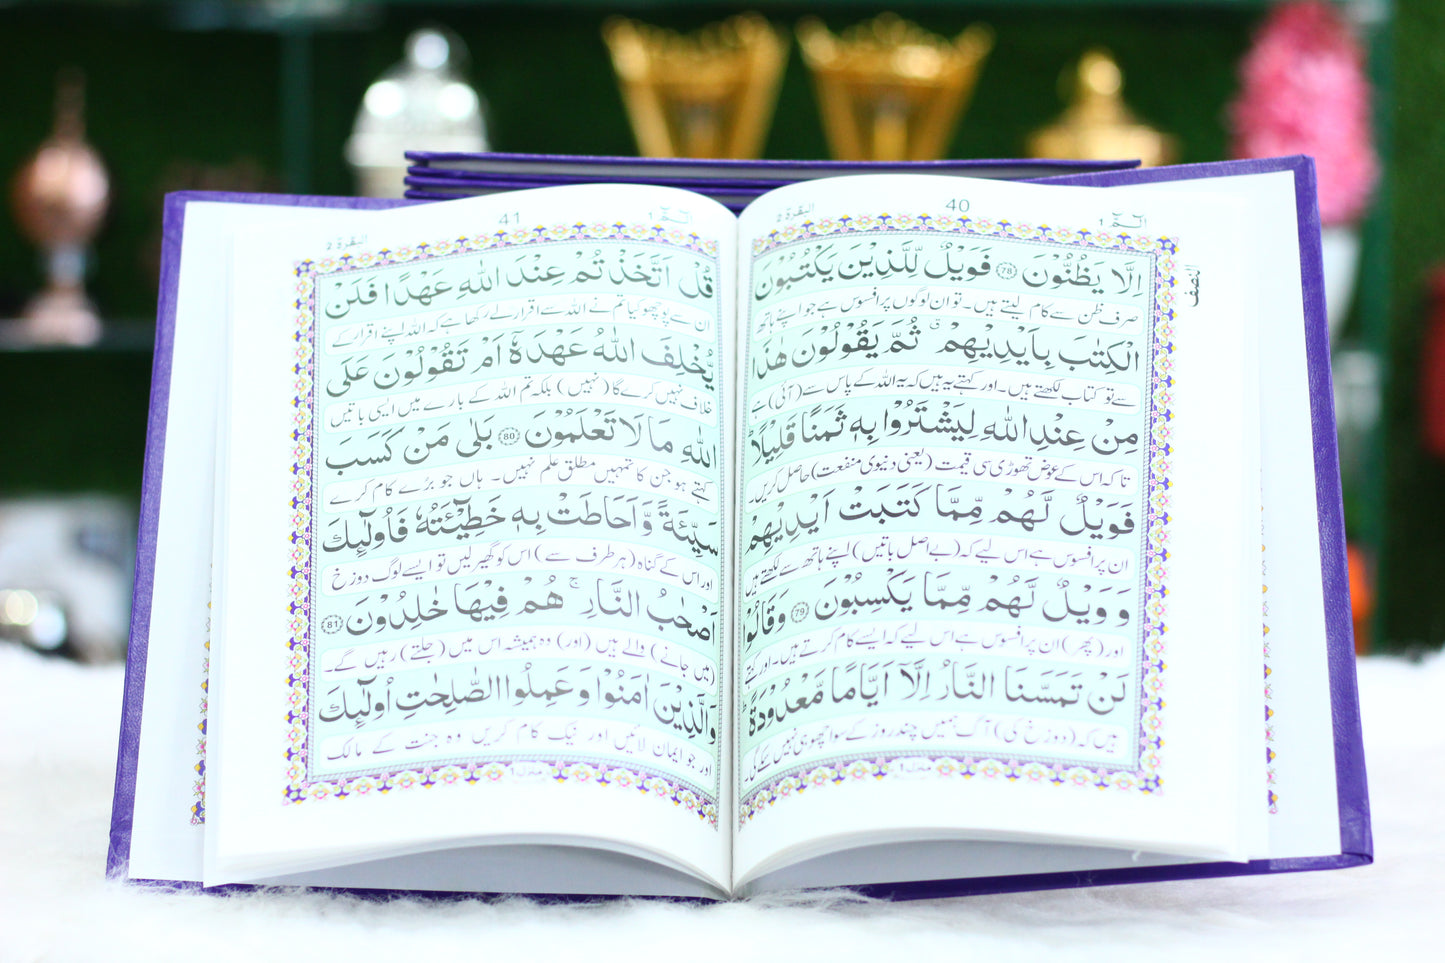 الٓمّٓ ١
40
البقرة ٢
النصف
اِلَّا يَظُنُّوْنَ ﴿78﴾ فَوَيْلٌ لِّلَّذِيْنَ يَكْتُبُوْنَ
صرف ظن سے کام لیتے ہیں۔ تو ان لوگوں پر افسوس ہے جو اپنے ہاتھ
الْكِتٰبَ بِاَيْدِيْهِمْ ۗ ثُمَّ يَقُوْلُوْنَ هٰذَا
سے تو کتاب لکھتے ہیں۔ اور کہتے یہ ہیں کہ یہ اللہ کے پاس سے (آئی) ہے
مِنْ عِنْدِ اللّٰهِ لِيَشْتَرُوْا بِهٖ ثَمَنًا قَلِيْلًا ؕ
تاکہ اس کے عوض تھوڑی سی قیمت (یعنی دنیوی منفعت) حاصل کریں۔
فَوَيْلٌ لَّهُمْ مِّمَّا كَتَبَتْ اَيْدِيْهِمْ
ان پر افسوس ہے اس لیے کہ (بے اصل باتیں) اپنے ہاتھ سے لکھتے ہیں
وَ وَيْلٌ لَّهُمْ مِّمَّا يَكْسِبُوْنَ ﴿79﴾ وَقَالُوْا
اور (پھر) ان پر افسوس ہے اس لیے کہ ایسے کام کرتے ہیں۔ اور کہتے
لَنْ تَمَسَّنَا النَّارُ اِلَّاۤ اَيَّامًا مَّعْدُوْدَةً ؕ
ہیں کہ (دوزخ کی) آگ ہمیں چند روز کے سوا چھو ہی نہیں سکے گی۔
منزل ١
الٓمّٓ ١
41
البقرة ٢
قُلْ اَتَّخَذْتُمْ عِنْدَ اللّٰهِ عَهْدًا فَلَنْ
ان سے پوچھو کیا تم نے اللہ سے اقرار لے رکھا ہے کہ اللہ اپنے اقرار کے
يُّخْلِفَ اللّٰهُ عَهْدَهٗۤ اَمْ تَقُوْلُوْنَ عَلَى
خلاف نہیں کرے گا (نہیں) بلکہ تم اللہ کے بارے میں ایسی باتیں
اللّٰهِ مَا لَا تَعْلَمُوْنَ ﴿80﴾ بَلٰى مَنْ كَسَبَ
کہتے ہو جن کا تمہیں مطلق علم نہیں۔ ہاں جو برے کام کرے
سَيِّئَةً وَّ اَحَاطَتْ بِهٖ خَطِيْٓئَتُهٗ فَاُولٰٓئِكَ
اور اس کے گناہ (ہر طرف سے) اس کو گھیر لیں تو ایسے لوگ دوزخ
اَصْحٰبُ النَّارِ ۚ هُمْ فِيْهَا خٰلِدُوْنَ ﴿81﴾
(میں جانے) والے ہیں (اور) وہ ہمیشہ اس میں (جلتے) رہیں گے۔
وَالَّذِيْنَ اٰمَنُوْا وَ عَمِلُوا الصّٰلِحٰتِ اُولٰٓئِكَ
اور جو ایمان لائیں اور نیک کام کریں وہ جنت کے مالک
منزل ١